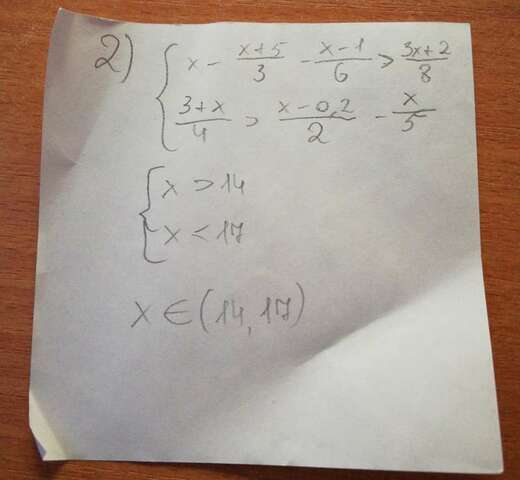 2) { x - (x+5)/3 - (x-1)/6 > (3x+2)/8
(3+x)/4 > (x-0,2)/2 - x/5
{ x > 14
x < 17
x ∈ (14, 17)